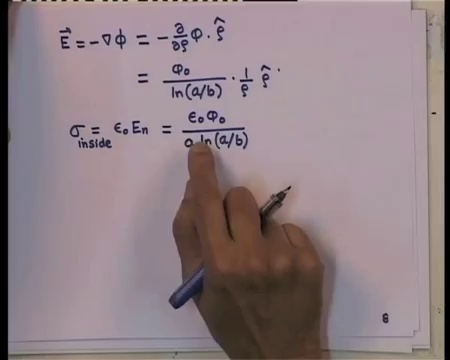 E⃗ = -∇Φ = - ∂/∂ρ Φ · ρ̂
= Φ₀ / ln(a/b) · 1/ρ ρ̂
σ inside = ε₀ Eₙ = ε₀ Φ₀ / a ln(a/b)
8